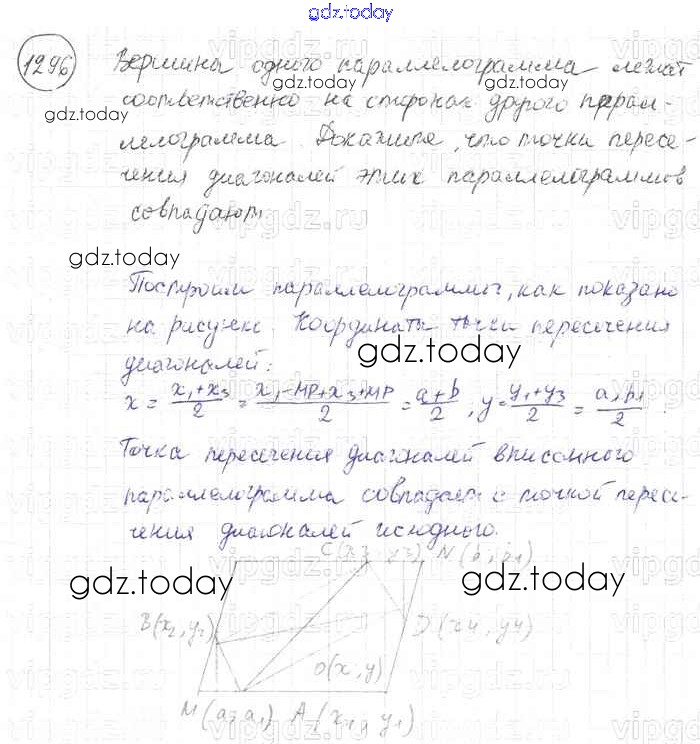 gdz.today
1296 Вершины одного параллелограмма лежат
соответственно на сторонах другого парал-
лелограмма. Докажите, что точки пересе-
чения диагоналей этих параллелограммов
совпадают.
gdz.today
gdz.today
gdz.today
gdz.today
Построим параллелограммы, как показано
на рисунке. Координаты точки пересечения
диагоналей:
gdz.today
x = x₁+x₃/2 = x₁-MP+x₃+MP/2 = a+b/2, y = y₁+y₃/2 = a₁b₁/2.
Точка пересечения диагоналей вписанного
параллелограмма совпадает с точкой пересе-
чения диагоналей исходного.
C(x3 y3) N(b, b1)
gdz.today
gdz.today
B(x₂, y₂) D(x4, y4)
O(x, y)
M(a; a₁) A(x₁, y₁)
vipgdz.ru